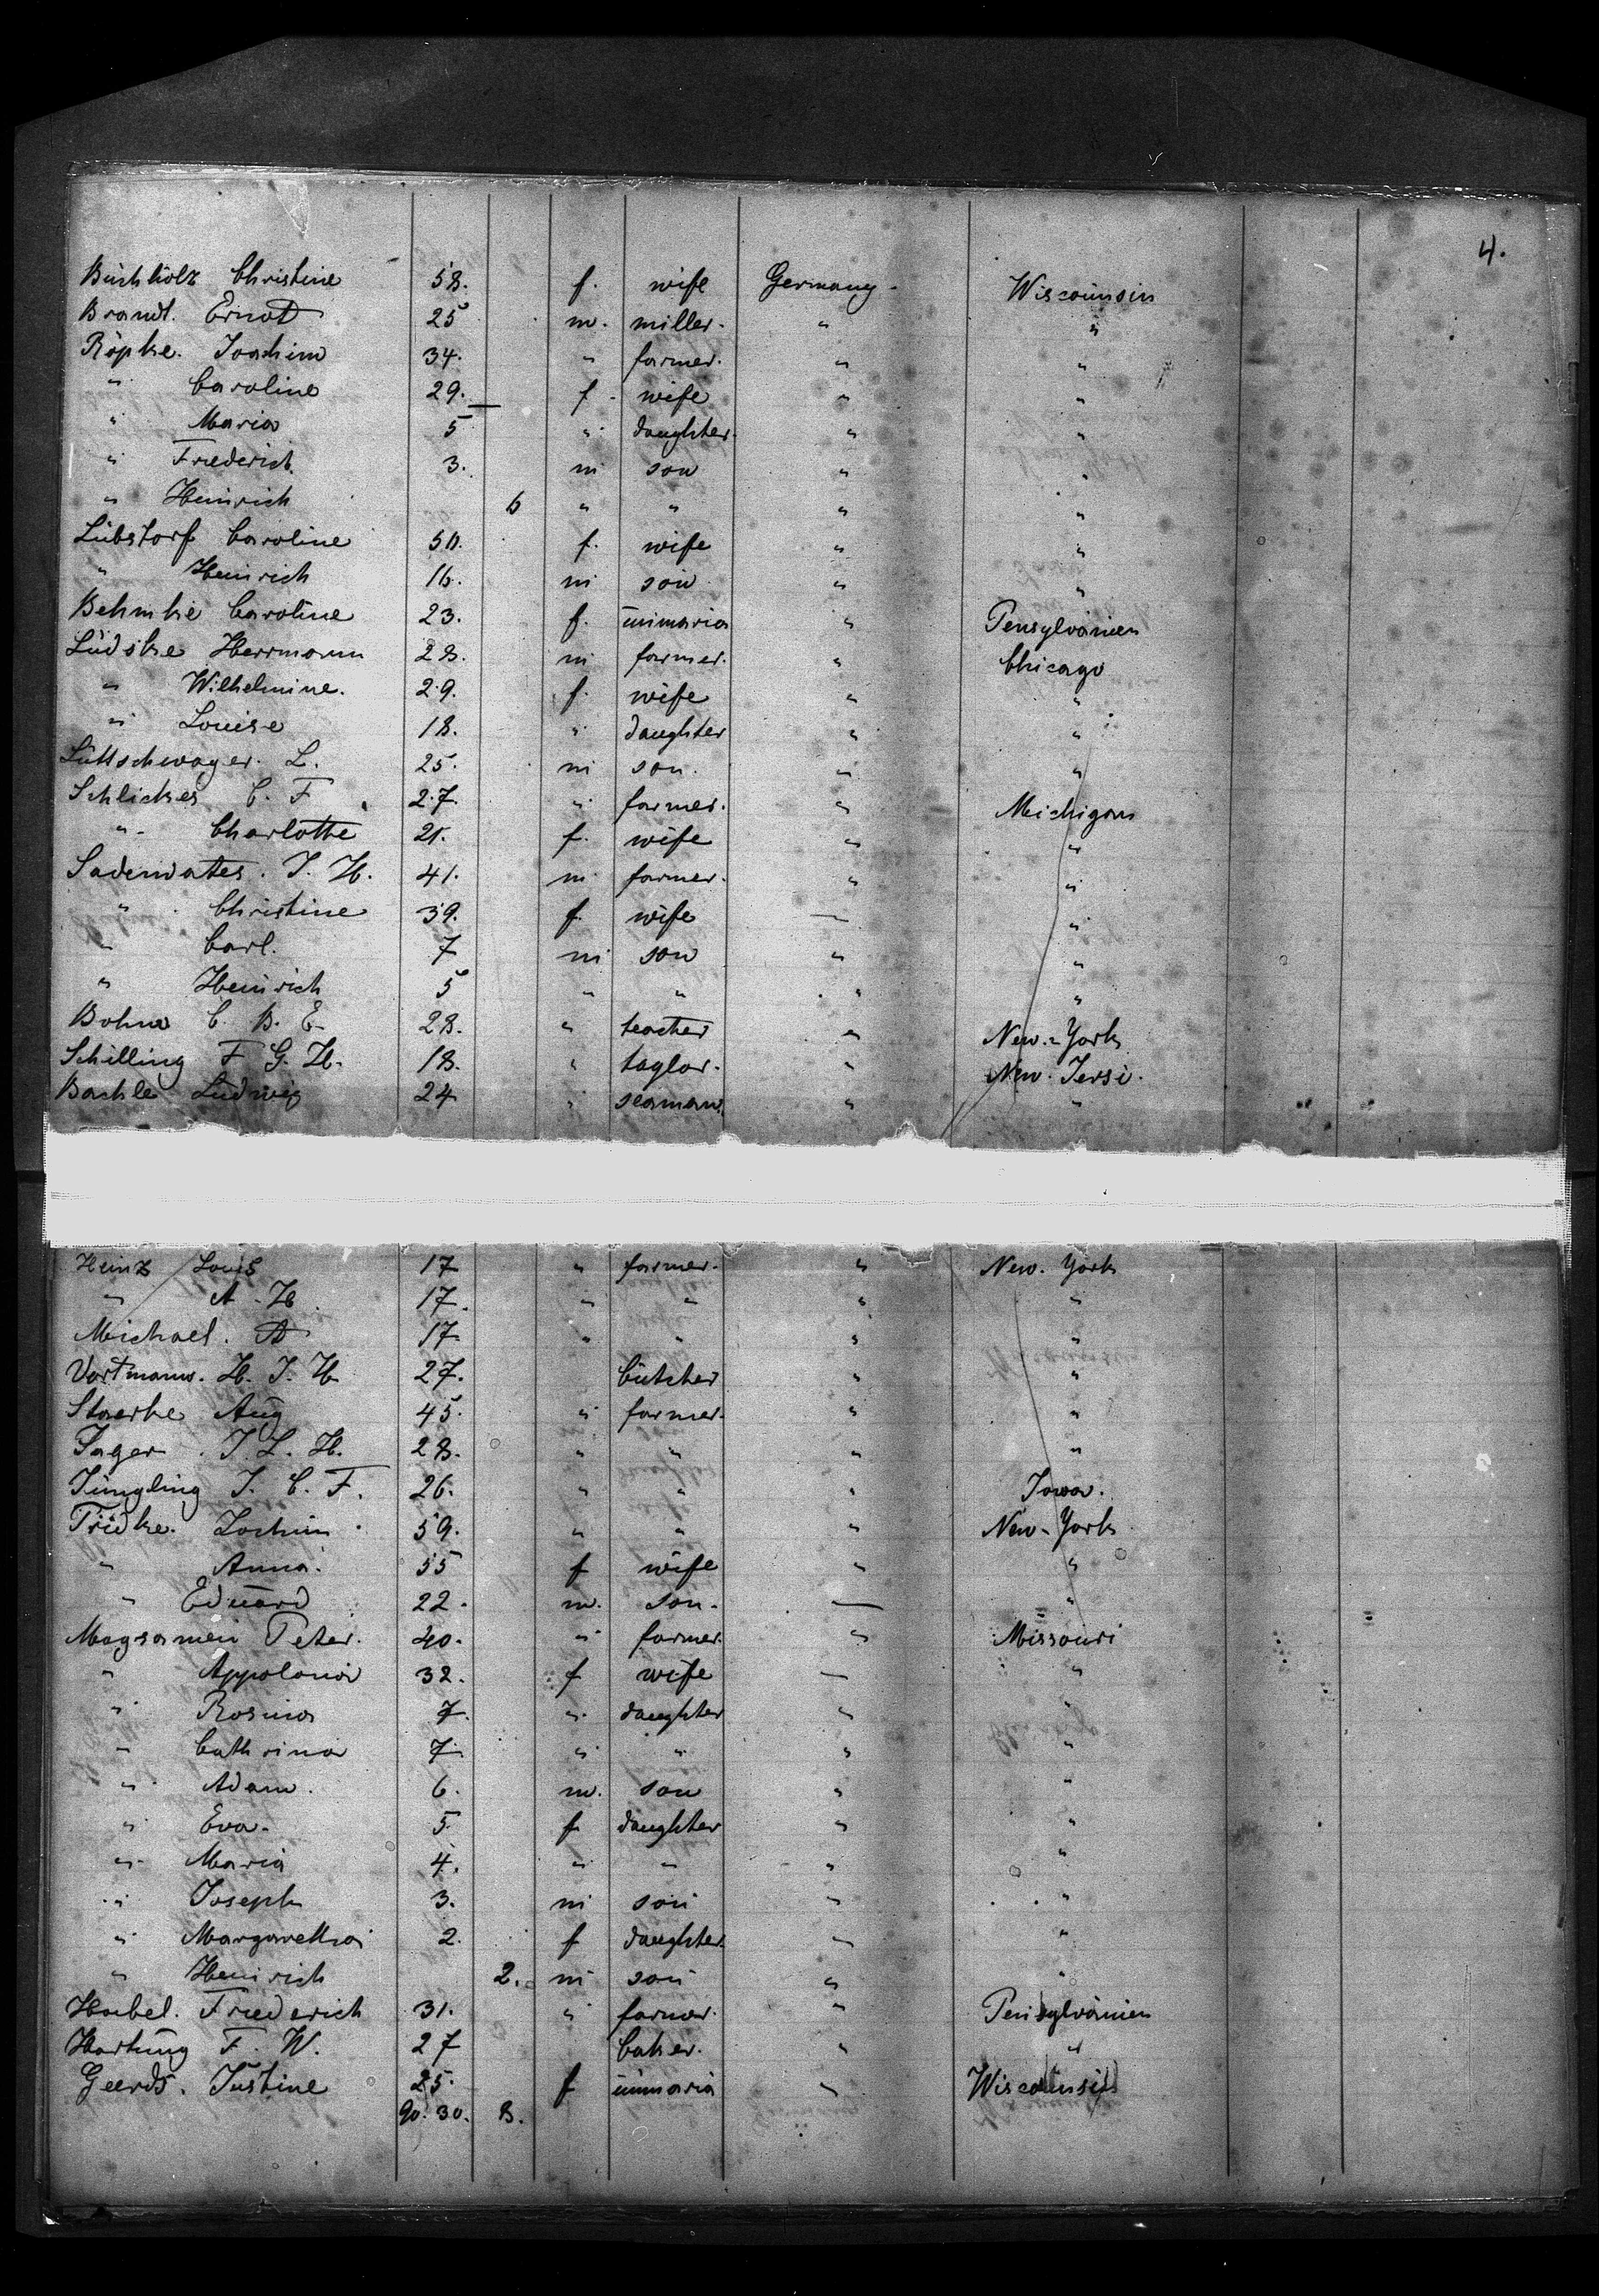 4.
Büchholz Christine 58. f. wife Germany. Wiscounsin
Brandt. Ernst 25 m. miller. " "
Röpke. Joachim 34. " farmer. " "
" Caroline 29. f. wife " "
" Maria 5 " daughter. " "
" Friederich. 3. m son " "
" Heinrich 6 " " " "
Lübstorf Caroline 50. f. wife " "
" Heinrich 16. m son " "
Behmke Caroline 23. f. unmaria " Pensylvanien
Lüdske Herrmann 28. m farmer. " Chicago
" Wilhelmine. 29. f. wife " "
" Louise 18. " daughter " "
Lüttschwager. L. 25. m son. " "
Schlicker C. F. 27. " farmer. " Michigan
" Charlotte 21. f. wife " "
Saderwater. J. H. 41. m farmer. " "
" Christine 39. f. wife — "
" Carl. 7 m son " "
" Heinrich 5 " " " "
Bohn C. B. E. 28. " teacher " New-York
Schilling F G. H. 18. " taylor. " New. Jersi.
Bachle Ludwig 24 " seaman. " "
Heinz Louis 17 " farmer. " New. York
" A. H. 17. " " " "
Michael. A 17 " " " "
Vortmann. H. J. H 27. bütcher " "
Staerke Aug 45. " farmer. " "
Jager. J. L. H. 28. " " " "
Jüngling J. C. F. 26. " " " Iowa.
Fridke. Jochim 59. " " " New-York
" Anna. 55 f wife " "
" Eduard 22. m. son. — "
Magsamen Peter. 40. " farmer. " Missouri
" Appolonia 32. f wife — "
" Rosina 7. " daughter " "
" Cathrina 7 " " " "
" Adam. 6. m. son " "
" Eva. 5. f daughter " "
" Maria 4. " " " "
" Joseph 3. m son " "
" Margaretha 2. f daughter. " "
" Heinrich 2. m son " "
Habel. Friederich 31. " farmer. " Pensylvanien
Hartung F. W. 27 baker. " "
Geerds. Justine 25. f unmaria " Wiscounsin
90. 30. 3.